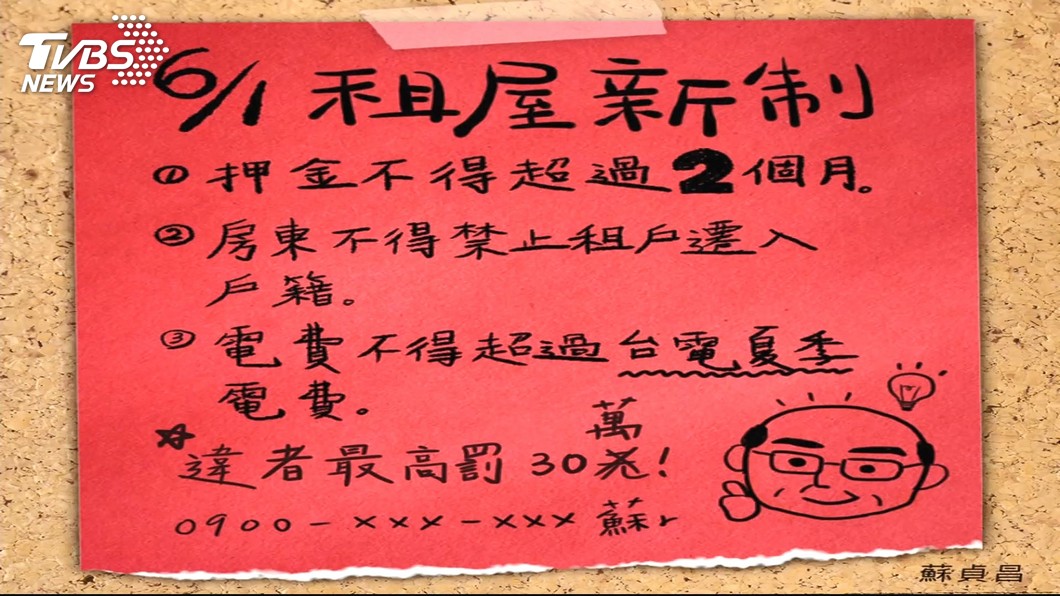 TVBS
NEWS
6/1 租屋新制
① 押金不得超過2個月。
② 房東不得禁止租戶遷入
戶籍。
③ 電費不得超過台電夏季
電費。
萬
☆違者最高罰30兆!
0900-xxx-xxx 蘇r
蘇貞昌